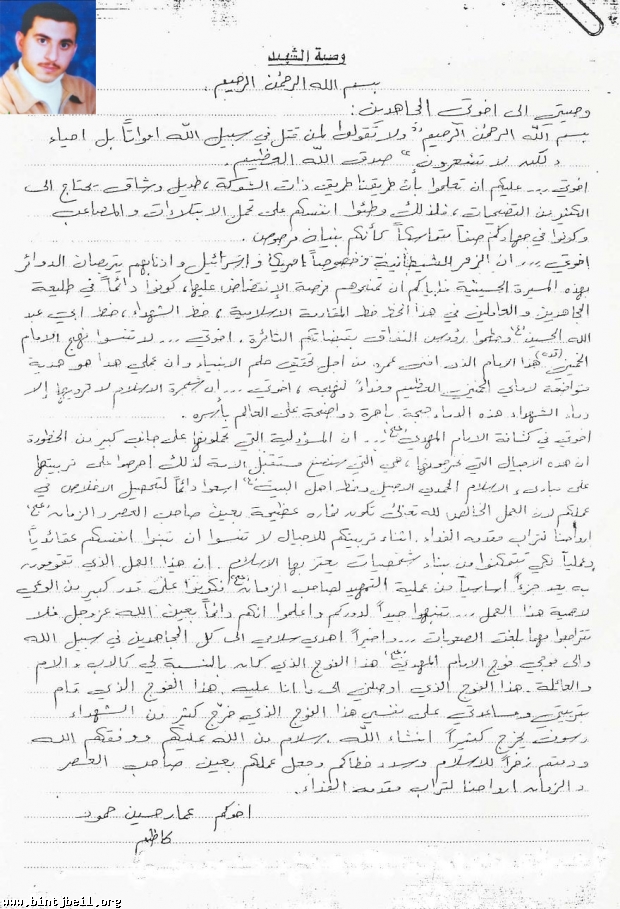 وصية الشهيد
بسم الله الرحمن الرحيم
وصيتي الى اخوتي المجاهدين :
بسم الله الرحمن الرحيم " ولا تقولوا لمن قتل في سبيل الله امواتاً بل احياء
ولكن لا تشعرون " صدق الله العظيم .
اخوتي ... عليكم ان تعلموا بأن طريقنا طريق ذات الشوكة ، طويل وشاق يحتاج الى
الكثير من التضحيات ، فلذلك وطنوا انفسكم على تحمل الابتلاءات والمصاعب
وكونوا في جهادكم صفاً متماسكاً كأنكم بنيان مرصوص .
اخوتي ... ان الزمر الشيطانية وخصوصاً امريكا واسرائيل واذنابهم يتربصان الدوائر
بهذه المسيرة الحسينية فإياكم أن تمنحوهم فرصة الإنقضاض عليها، كونوا دائماً في طليعة
المجاهدين والعاملين في هذا الخط خط المقاومة الاسلامية ، خط الشهداء ، خط ابي عبد
الله الحسين (ع) وحطموا رؤوس النفاق بقبضاتكم الثائرة . اخوتي ... لا تنسوا نهج الامام
الخميني (قده) هذا الامام الذي افنى عمره من اجل تحقيق حلم الانبياء وان عملي هذا هو هدية
متواضعة لإمامي الخميني العظيم وفاءً لنهجه ، اخوتي ... إن شجرة الاسلام لا يرويها إلا
دماء الشهداء هذه الدماء حجة باهرة وواضحة على العالم بأسره .
اخوتي في كشافة الامام المهدي (عج) ... ان المسؤولية التي تحملونها على جانب كبير من الخطورة
ان هذه الاجيال التي تخرجونها ، هي التي ستصنع مستقبل الامة لذلك احرصوا على تربيتها
على مبادىء الاسلام المحمدي الاصيل وخط اهل البيت (ع) اسعوا دائماً لتحصيل الاخلاص في
عملكم لان العمل الخالص لله تعالى تكون ثماره عظيمة بعين صاحب العصر والزمان (عج)
ارواحنا لتراب مقدمه الفداء . اثناء تربيتكم للاجيال لا تنسوا ان تبنوا انفسكم عقائدياً
وعملياً لكي تتمكنوا من بناء شخصيات يعتز بها الاسلام . ان هذا العمل الذي تقومون
به يعد جزءاً اساسياً من عملية التمهيد لصاحب الزمان (عج) فكونوا على قدر كبير من الوعي
لاهمية هذا العمل ... تنبهوا جيداً لدوركم واعلموا انكم دائماً بعين الله عزوجل فلا
تتراجعوا مهما بلغت الصعوبات ... واخيراً اهدي سلامي الى كل المجاهدين في سبيل الله
والى فوجي فوج الامام المهدي (عج) هذا الفوج الذي كان بالنسبة لي كالاب والام
والعائلة . هذا الفوج الذي اوصلني الى ما انا عليه . هذا الفوج الذي قام
بتربيتي ومساعدتي على نفسي هذا الفوج الذي خرّج كثير من الشهداء
وسوف يخرج كثيراً انشاء الله . سلام من الله عليكم ووفقكم الله
ودمتم ذخراً للاسلام وسدد خطاكم وجعل عملكم بعين صاحب العصر
والزمان ارواحنا لتراب مقدمه الفداء .
اخوكم عمار حسين حمود
كاظم
www.bintjbeil.org